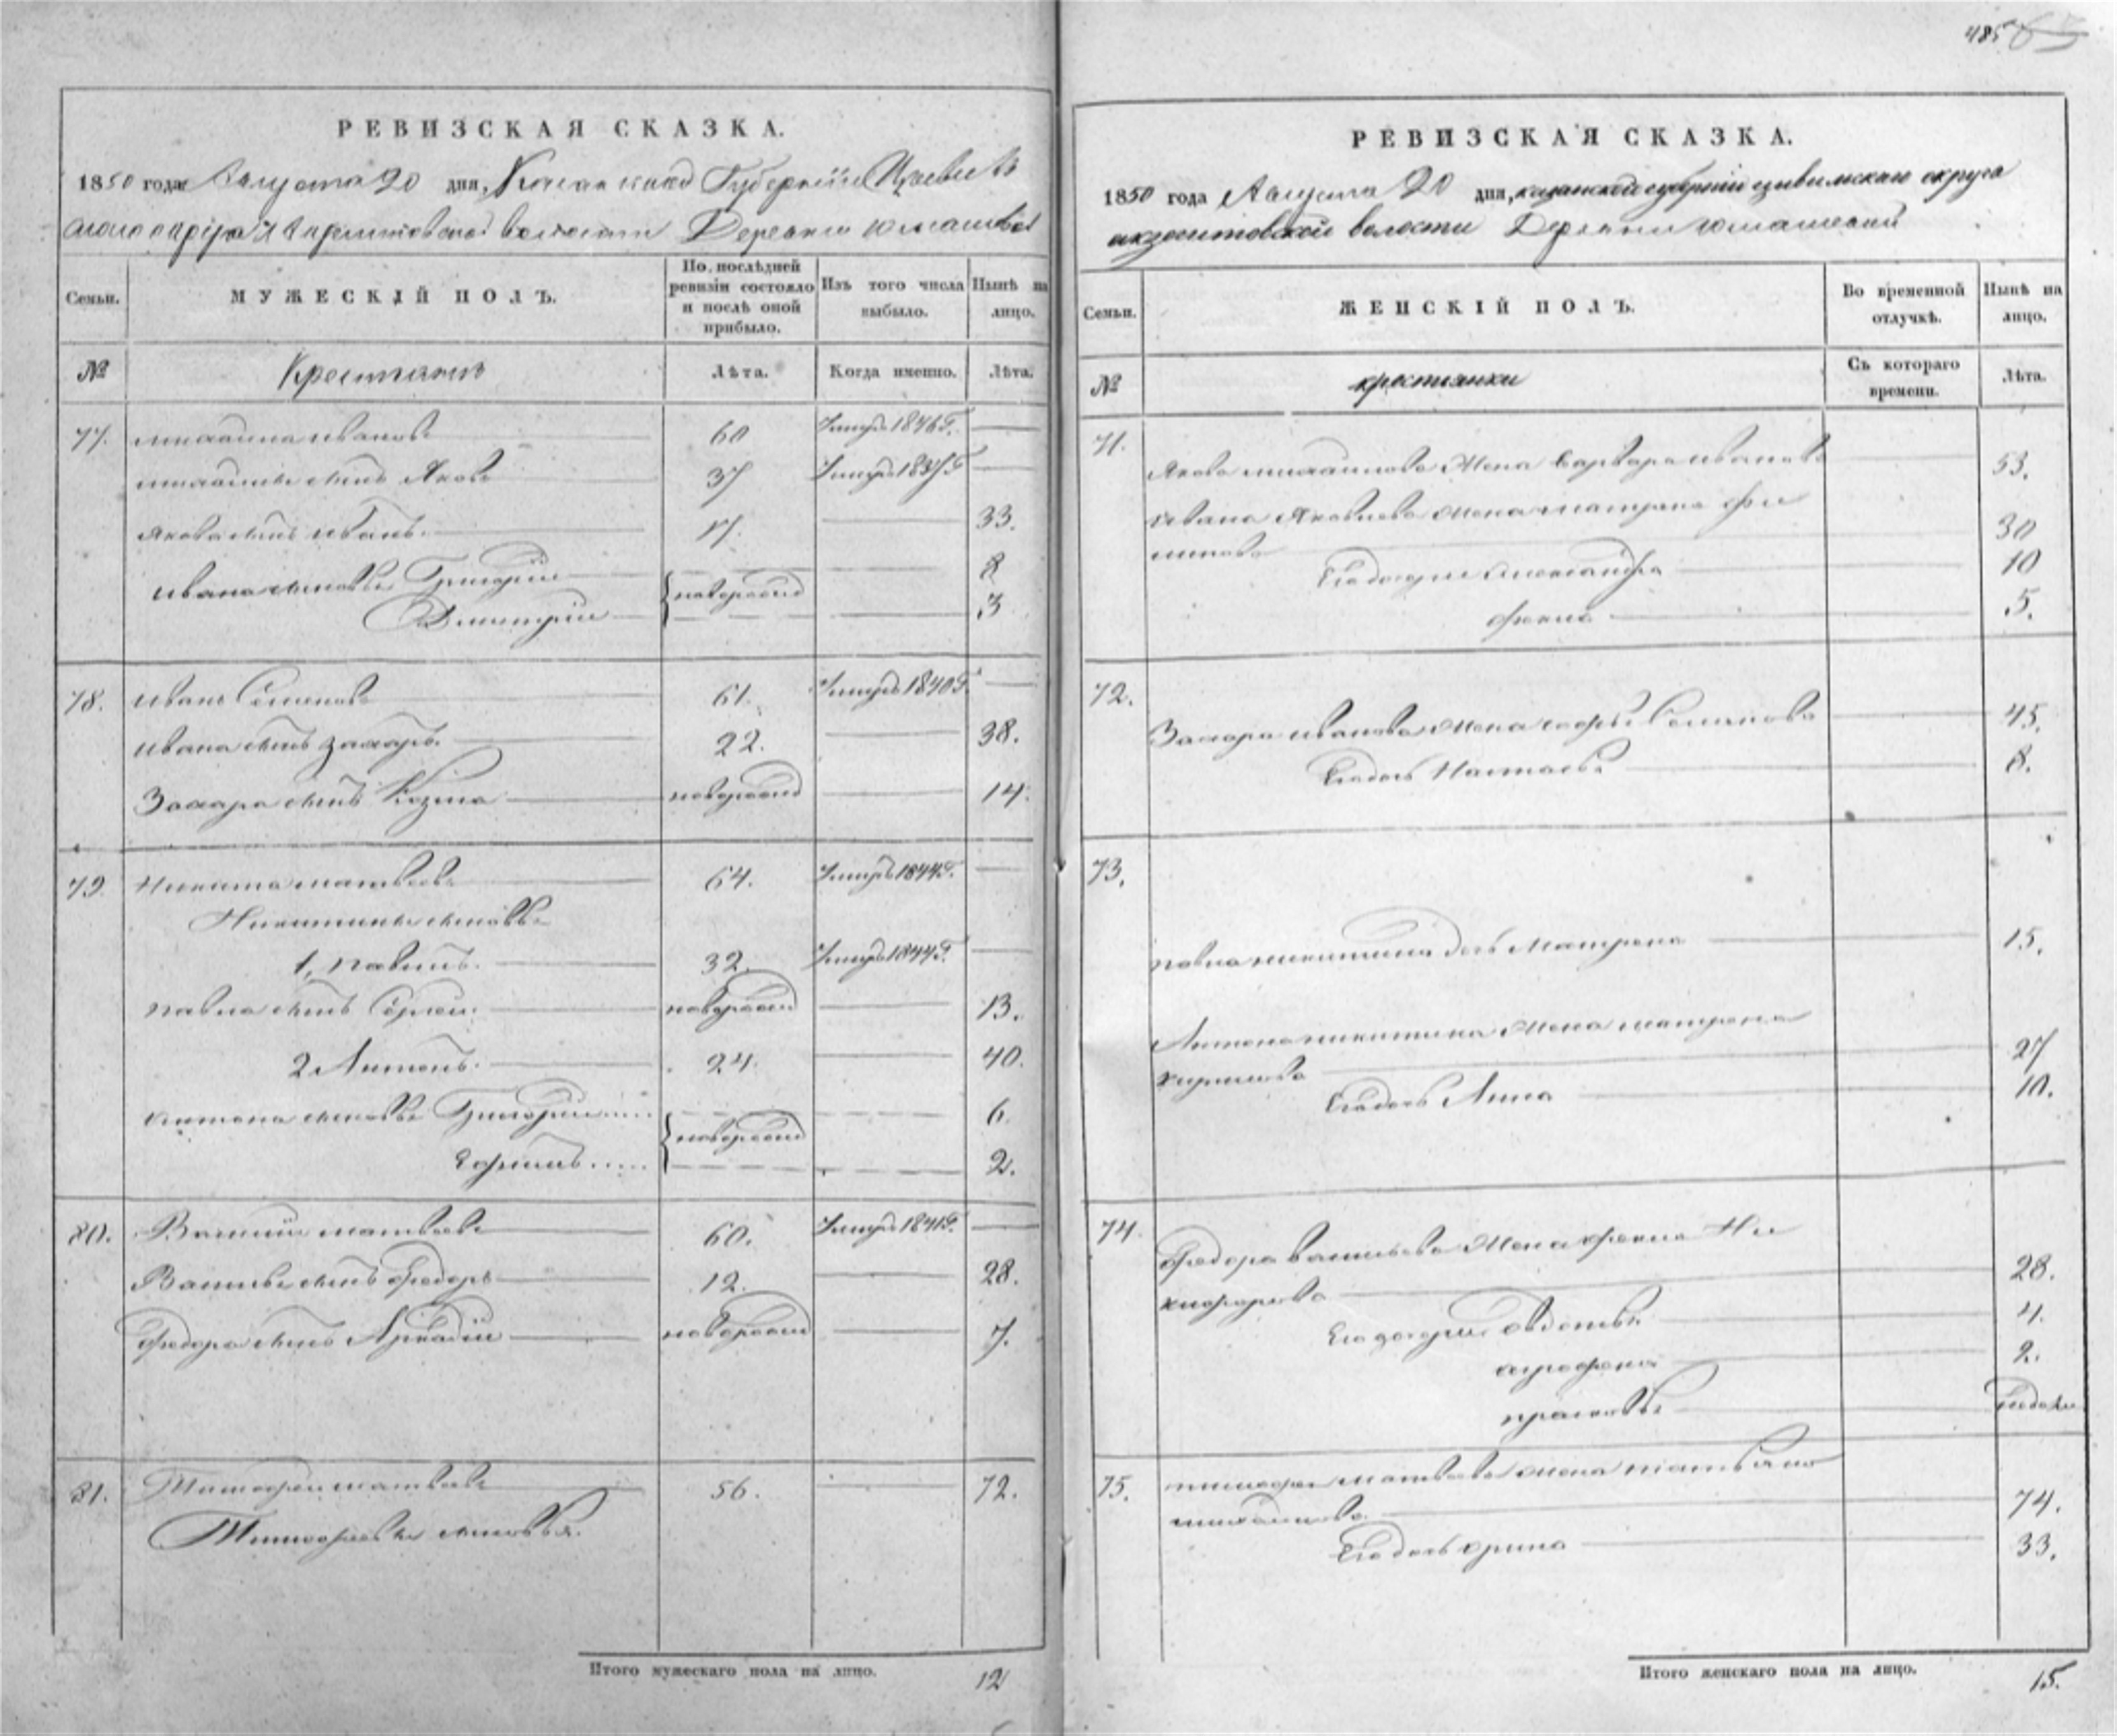 485
РЕВИЗСКАЯ СКАЗКА.
1850 года Августа 20 дня, Казанской Губернии Цивиль
скаго округа волости Деревни Юмашевой
Семьи. МУЖЕСКІЙ ПОЛЪ. По послѣдней ревизіи состояло и послѣ оной прибыло. Изъ того числа выбыло. Нынѣ на лицо.
№ Крестьяне Лѣта. Когда именно. Лѣта.
77. Михаила Ивановъ 60 Умеръ 1846 г.
Михайлы сынъ Яковъ 37 Умеръ 1837 г
Якова сынъ Иванъ 17. 33.
Ивана сыновья Григорій новорожд 8
Дмитрій 3
78. Иванъ Семеновъ 61. Умеръ 1840 г.
Ивана сынъ Захаръ 22. 38.
Захара сынъ Козма новорожд 14.
79. Никита Матвѣевъ 64. Умеръ 1844 г.
Никитины сыновья
1, Павилъ 32. Умеръ 1844 г.
Павла сынъ Сергей новорожд 13.
2 Антонъ 24. 40.
Антона сыновья Григорій новорожд 6
Ефримъ 2.
80. Василій Матвѣевъ 60. Умеръ 1841 г.
Василья сынъ Федоръ 12. 28.
Федора сынъ Аркадій новорожд 7.
81. Тимофей Матвѣевъ 56. 72.
Тимофеевы сыновья
Итого мужескаго пола на лицо. 12
РЕВИЗСКАЯ СКАЗКА.
1850 года Августа 20 дня, казанской губерніи цивильскаго округа
волости Деревни Юмашевой
Семьи. ЖЕНСКІЙ ПОЛЪ. Во временной отлучкѣ. Нынѣ на лицо.
№ крестьянки Съ котораго времени. Лѣта.
71. Якова Михайлова жена Варвара Иванова 53.
Ивана Яковлева жена Матрена Фи
липова 30
Его дочери Александра 10
Фекла 5.
72. Захара Иванова жена Софья Семенова 45.
Его дочь Настасья 8.
73. Павла Никитина дочь Матрена 15.
Антона Никитина жена Матрена
Кирилова 27
Его дочь Анна 10.
74. Федора Васильева жена Фекла Ни
кифорова 28.
Его дочери Авдотья 4.
Аграфена 2.
Прасковья
75. Тимофея Матвѣева жена Татьяна
Михайлова 74.
Его дочь Орина 33.
Итого женскаго пола на лицо. 15.